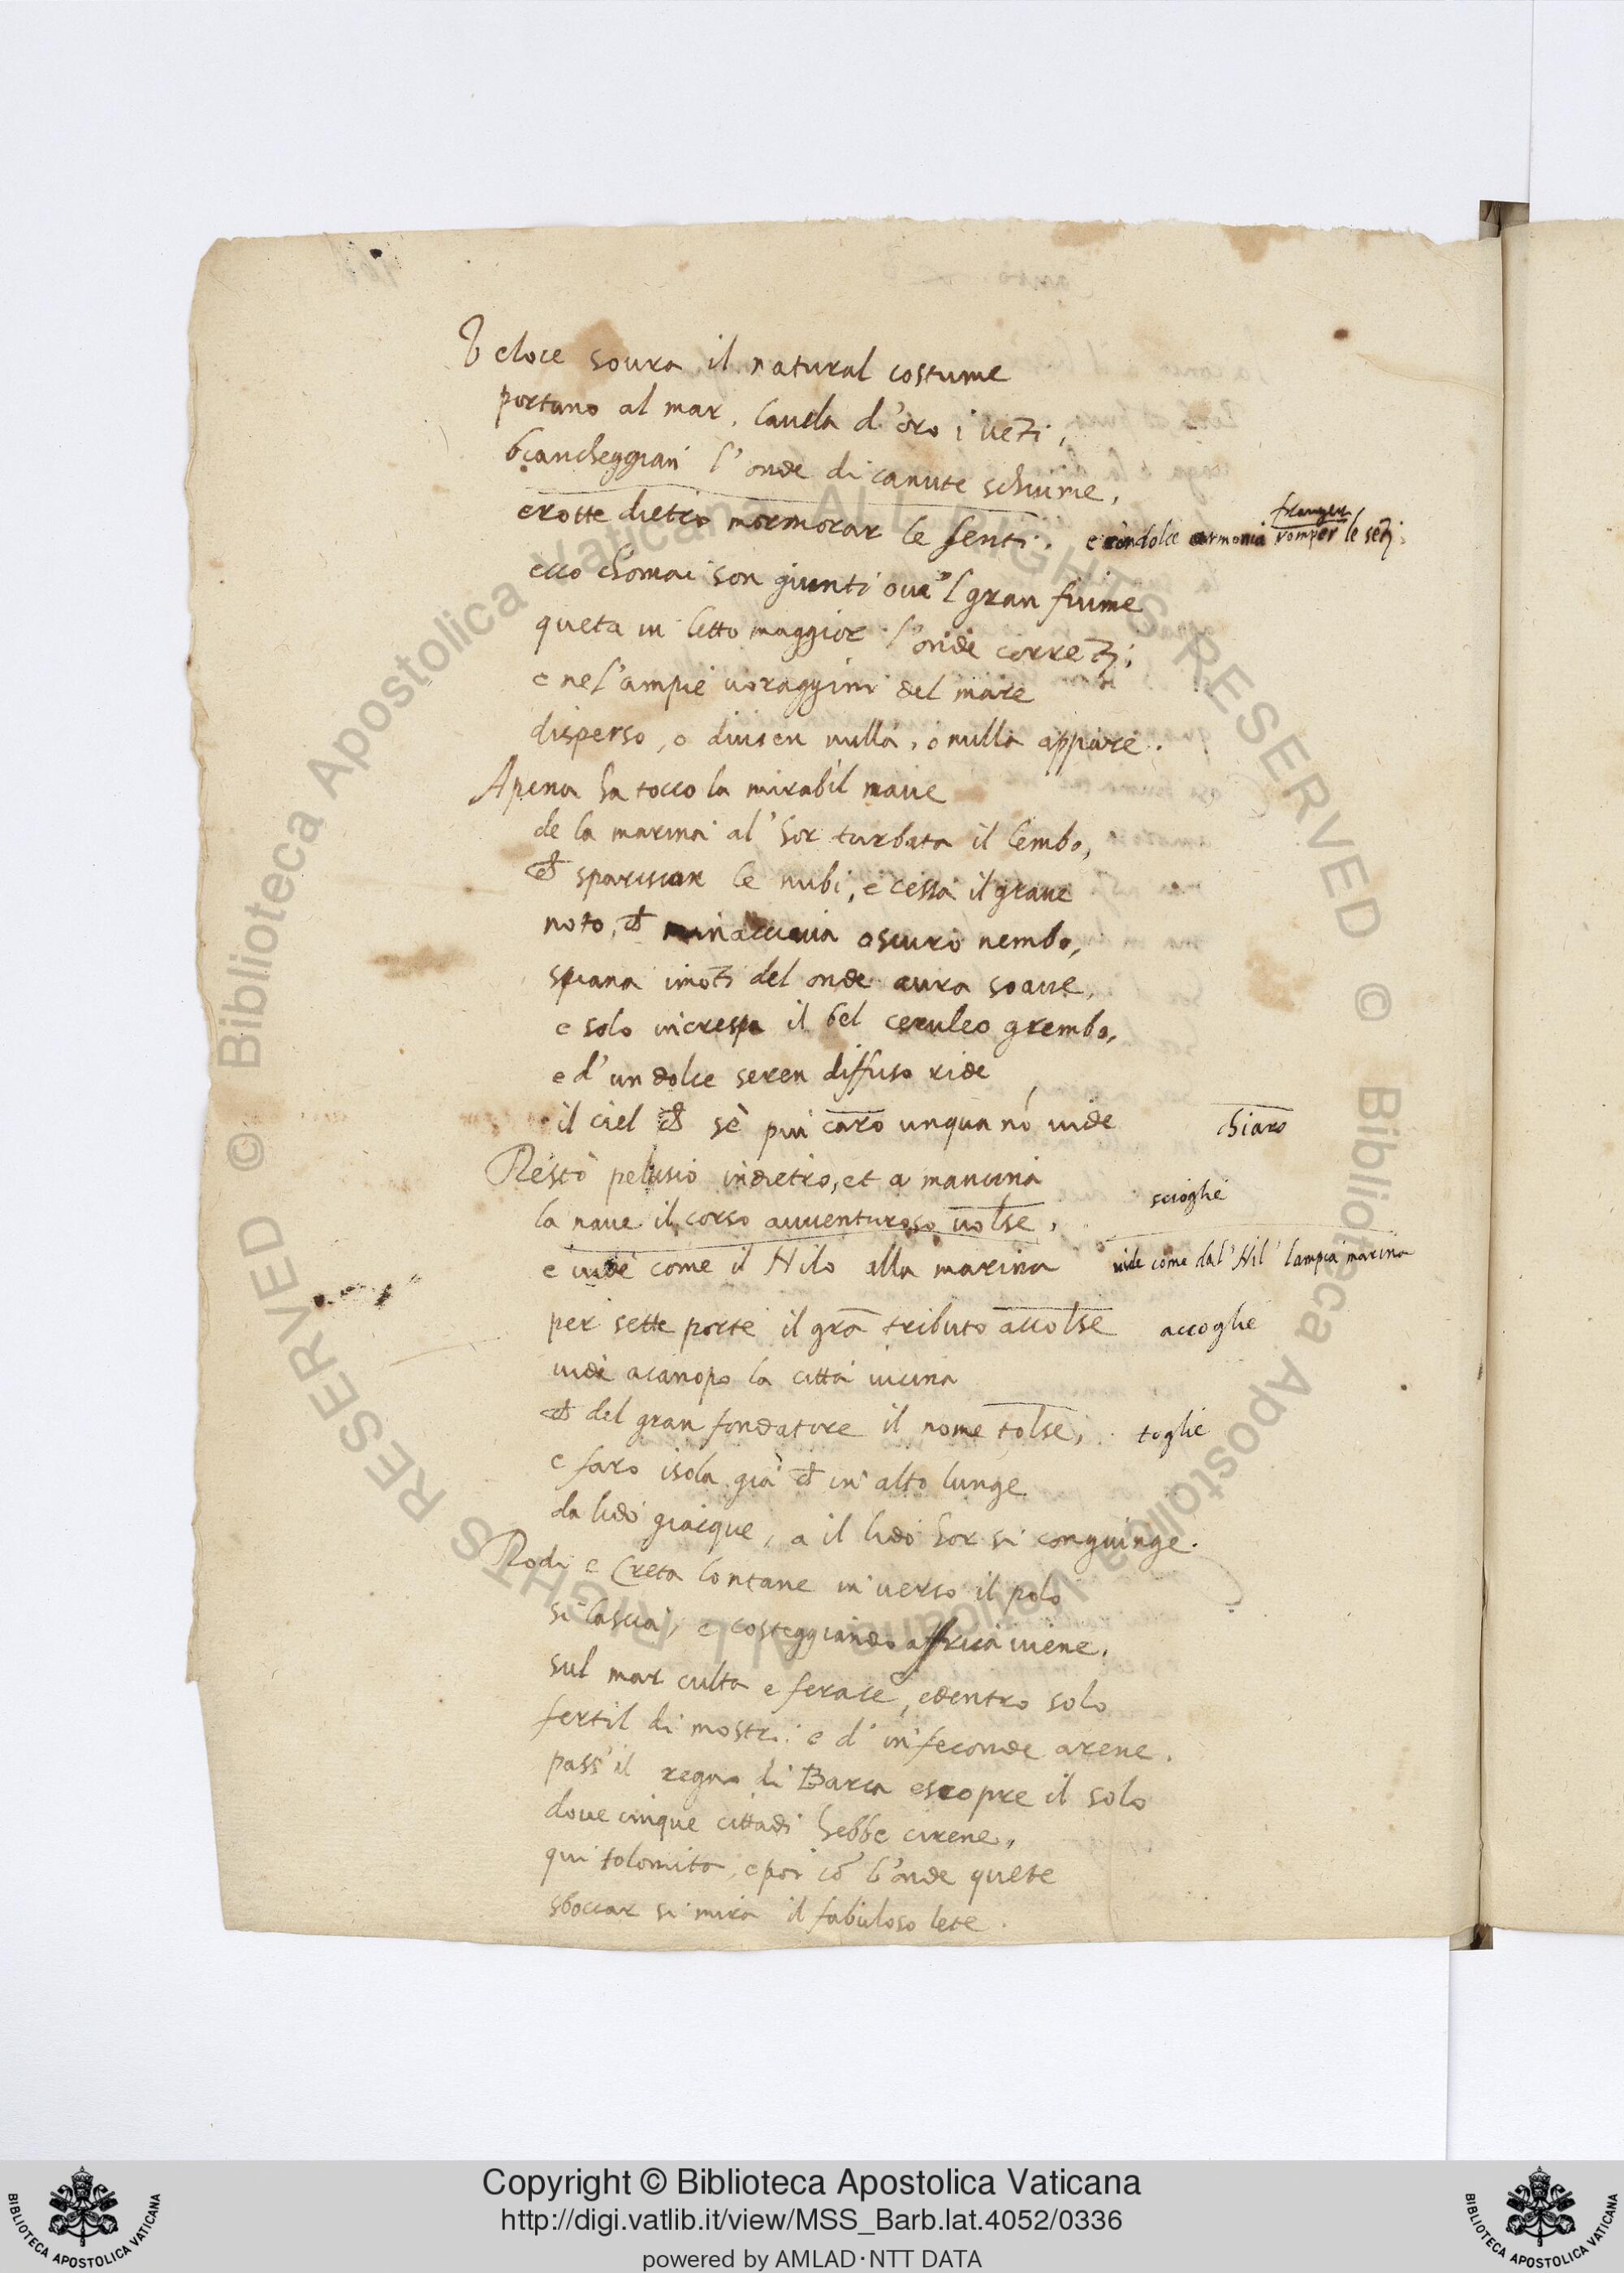 Veloce soura il natural costume
portano al mar, l'auela d'oro i uẽti,
biancheggian l'onde di canute schiume,
e rotte dietro mormorar le senti. e con dolce armonia romper le sẽti.
franger
ecco chomai son giunti oue'l gran fiume
queta in letto maggior l'onde correti;
e nel'ampie uoraggini del mare
disperso, o diuien nulla, o nulla appare.
Apena ha tocco la mirabil naue
de la marina al'hor turbata il lembo,
che spariscon le nubi, e cessa il graue
noto, che minacciaua oscuro nembo,
spiana i mõti del onde aura soaue,
e solo increspa il bel ceruleo grembo,
e d'un dolce seren diffuso ride
il ciel che sè piu caro unqua nõ uide chiaro
Restò pelusio indietro, et a mancina
scioglie
la naue il corso auuenturoso uolse,
e uide come il Nilo alla marina uide come dal' Nil' l'ampia marina
per sette porte il grã tributo accolse accoglie
uidi a canopo la città uicina
che del gran fondatore il nome tolse, toglie
e faro isola già che in alto lunge
da lido giacque, a il lido hor si congiunge.
Rodi e Creta lontane in uerso il polo
si lascia, e costeggiando affrica uiene,
sul mar culta e ferace, e dentro solo
fertil di mostri e d'infeconde arene.
pass'il regno di Barca e scopre il solo
doue cinque cittadi hebbe cirene,
qui tolomita, e poi cõ l'onde quete
sboccar si mira il fabuloso lete.
© Biblioteca Apostolica Vaticana ALL RIGHTS RESERVED © Biblioteca Apostolica Vaticana ALL RIGHTS RESERVED
BIBLIOTECA APOSTOLICA VATICANA
Copyright © Biblioteca Apostolica Vaticana
http://digi.vatlib.it/view/MSS_Barb.lat.4052/0336
powered by AMLAD·NTT DATA
BIBLIOTECA APOSTOLICA VATICANA